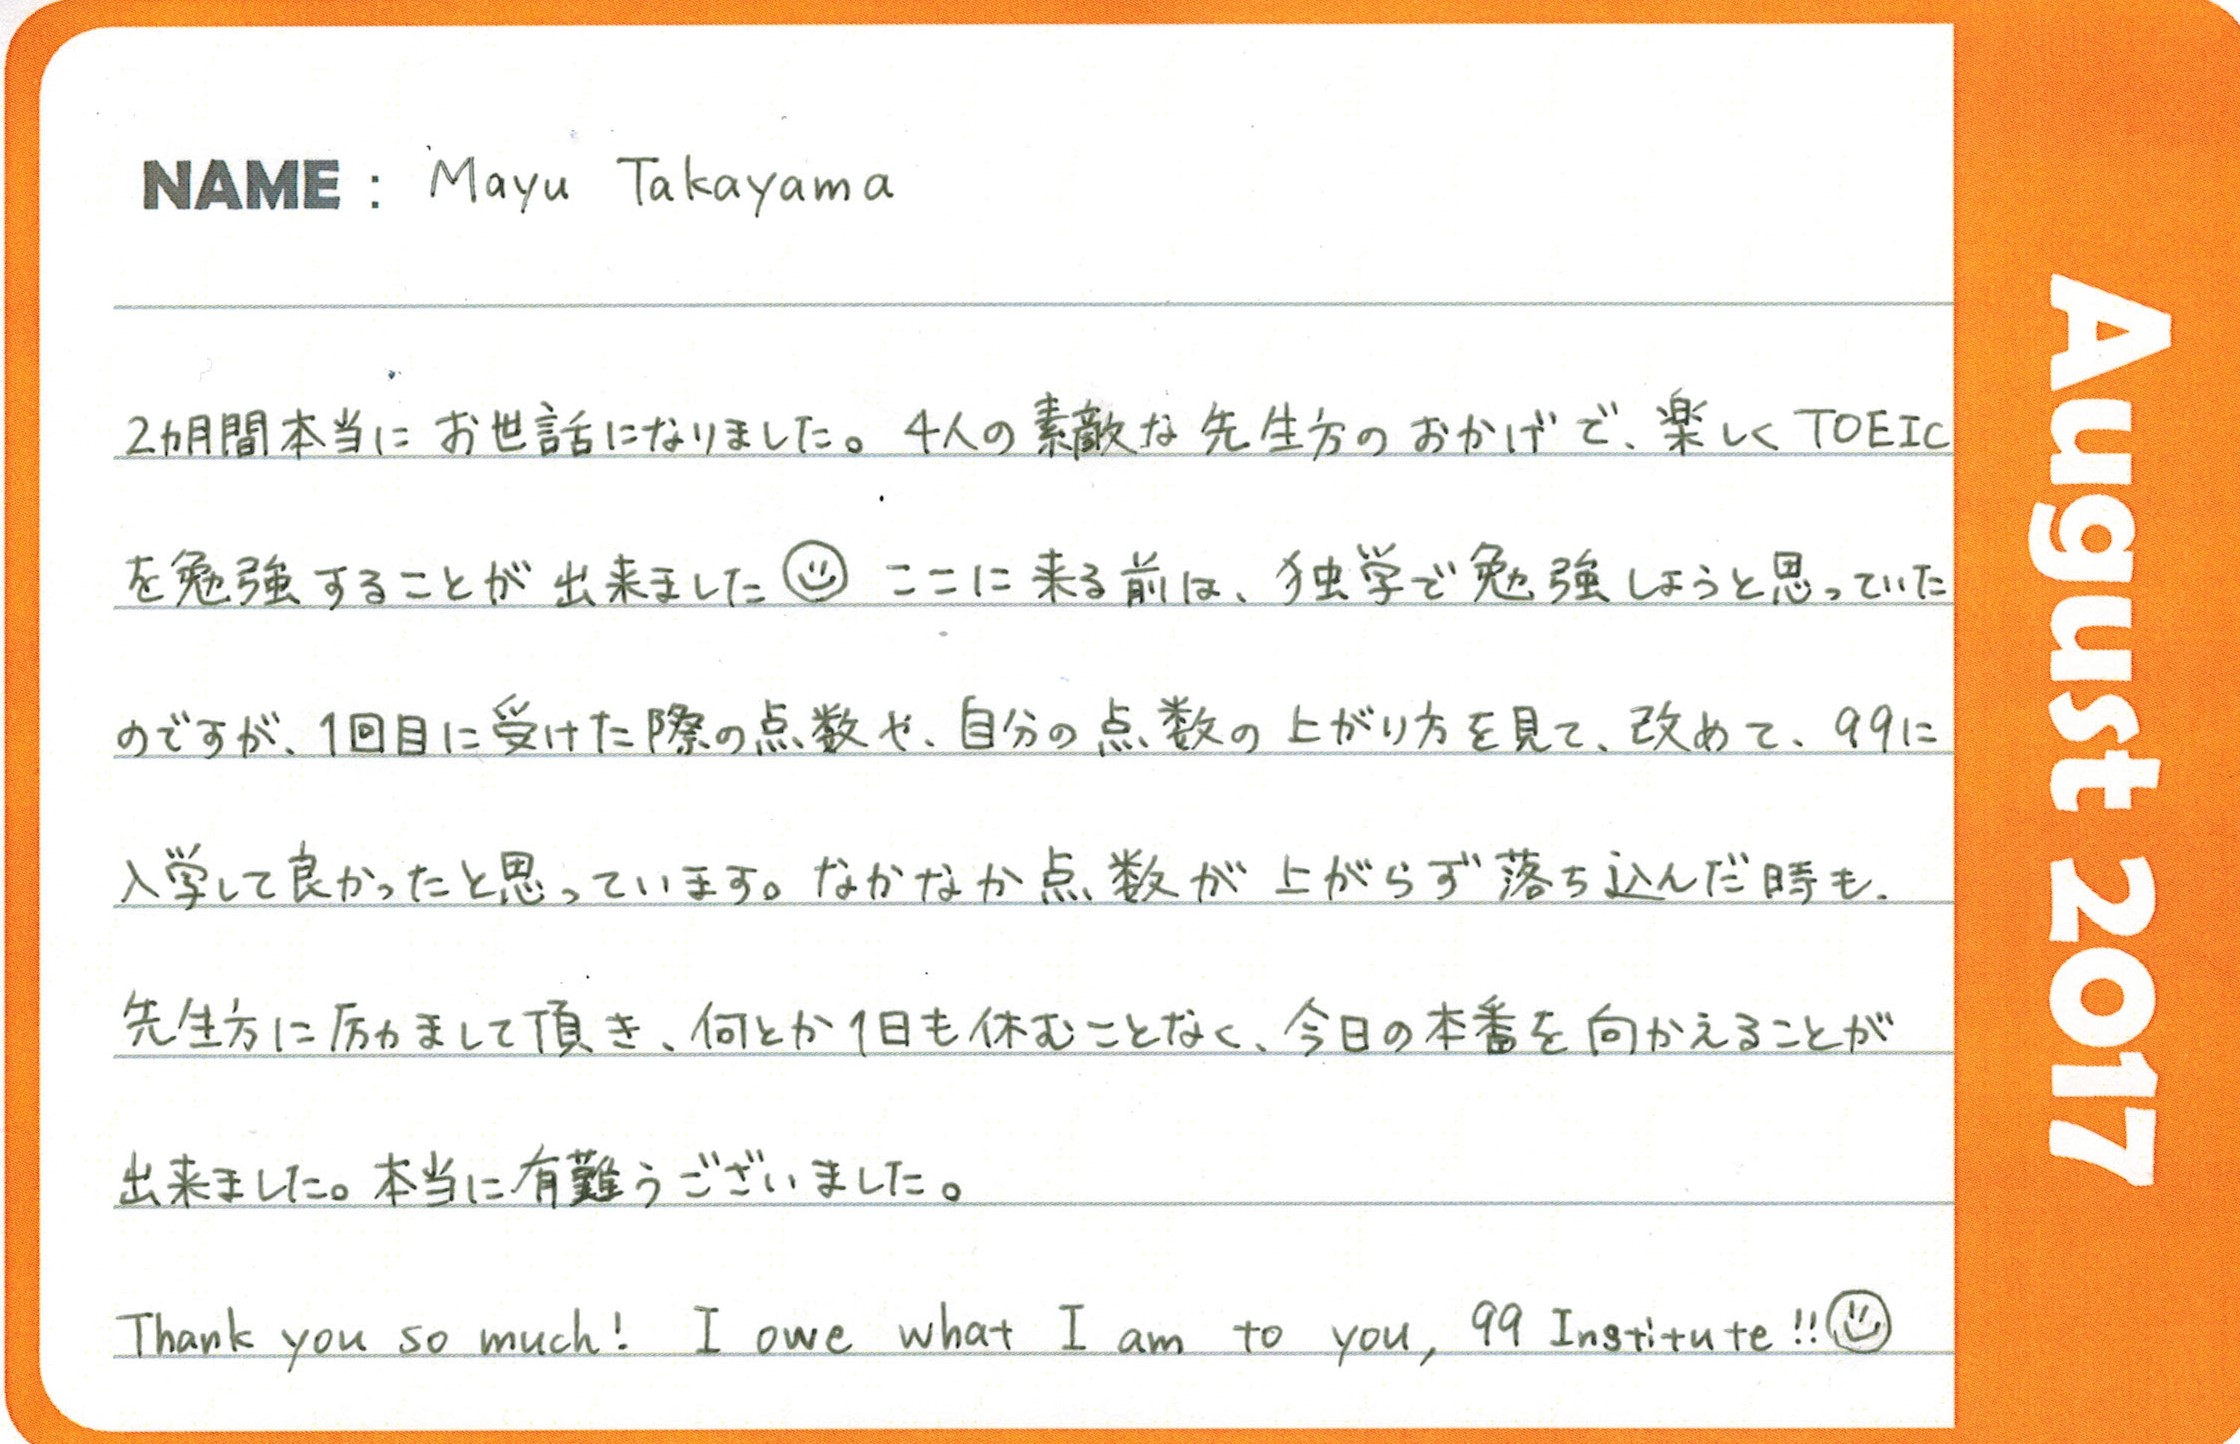 NAME : Mayu Takayama
2カ月間本当にお世話になりました。4人の素敵な先生方のおかげで、楽しくTOEIC
を勉強することが出来ました☺ ここに来る前は、独学で勉強しようと思っていた
のですが、1回目に受けた際の点数や、自分の点数の上がり方を見て、改めて、99に
入学して良かったと思っています。なかなか点数が上がらず落ち込んだ時も、
先生方に励まして頂き、何とか1日も休むことなく、今日の本番を向かえることが
出来ました。本当に有難うございました。
Thank you so much! I owe what I am to you, 99 Institute!!☺
August 2017